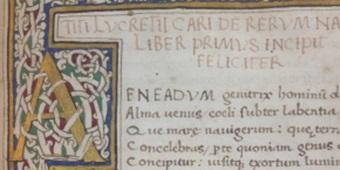 TITI LVCRETII CARI DE RERVM NA
LIBER PRIMVS INCIPIT
FELICITER
AENEADVM genitrix hominũ d
Alma venus: coeli subter labentia
Que mare nauigerum: que terra
Concelebras, p te quoniam genus
Concipitur: uisitq exortum lumin